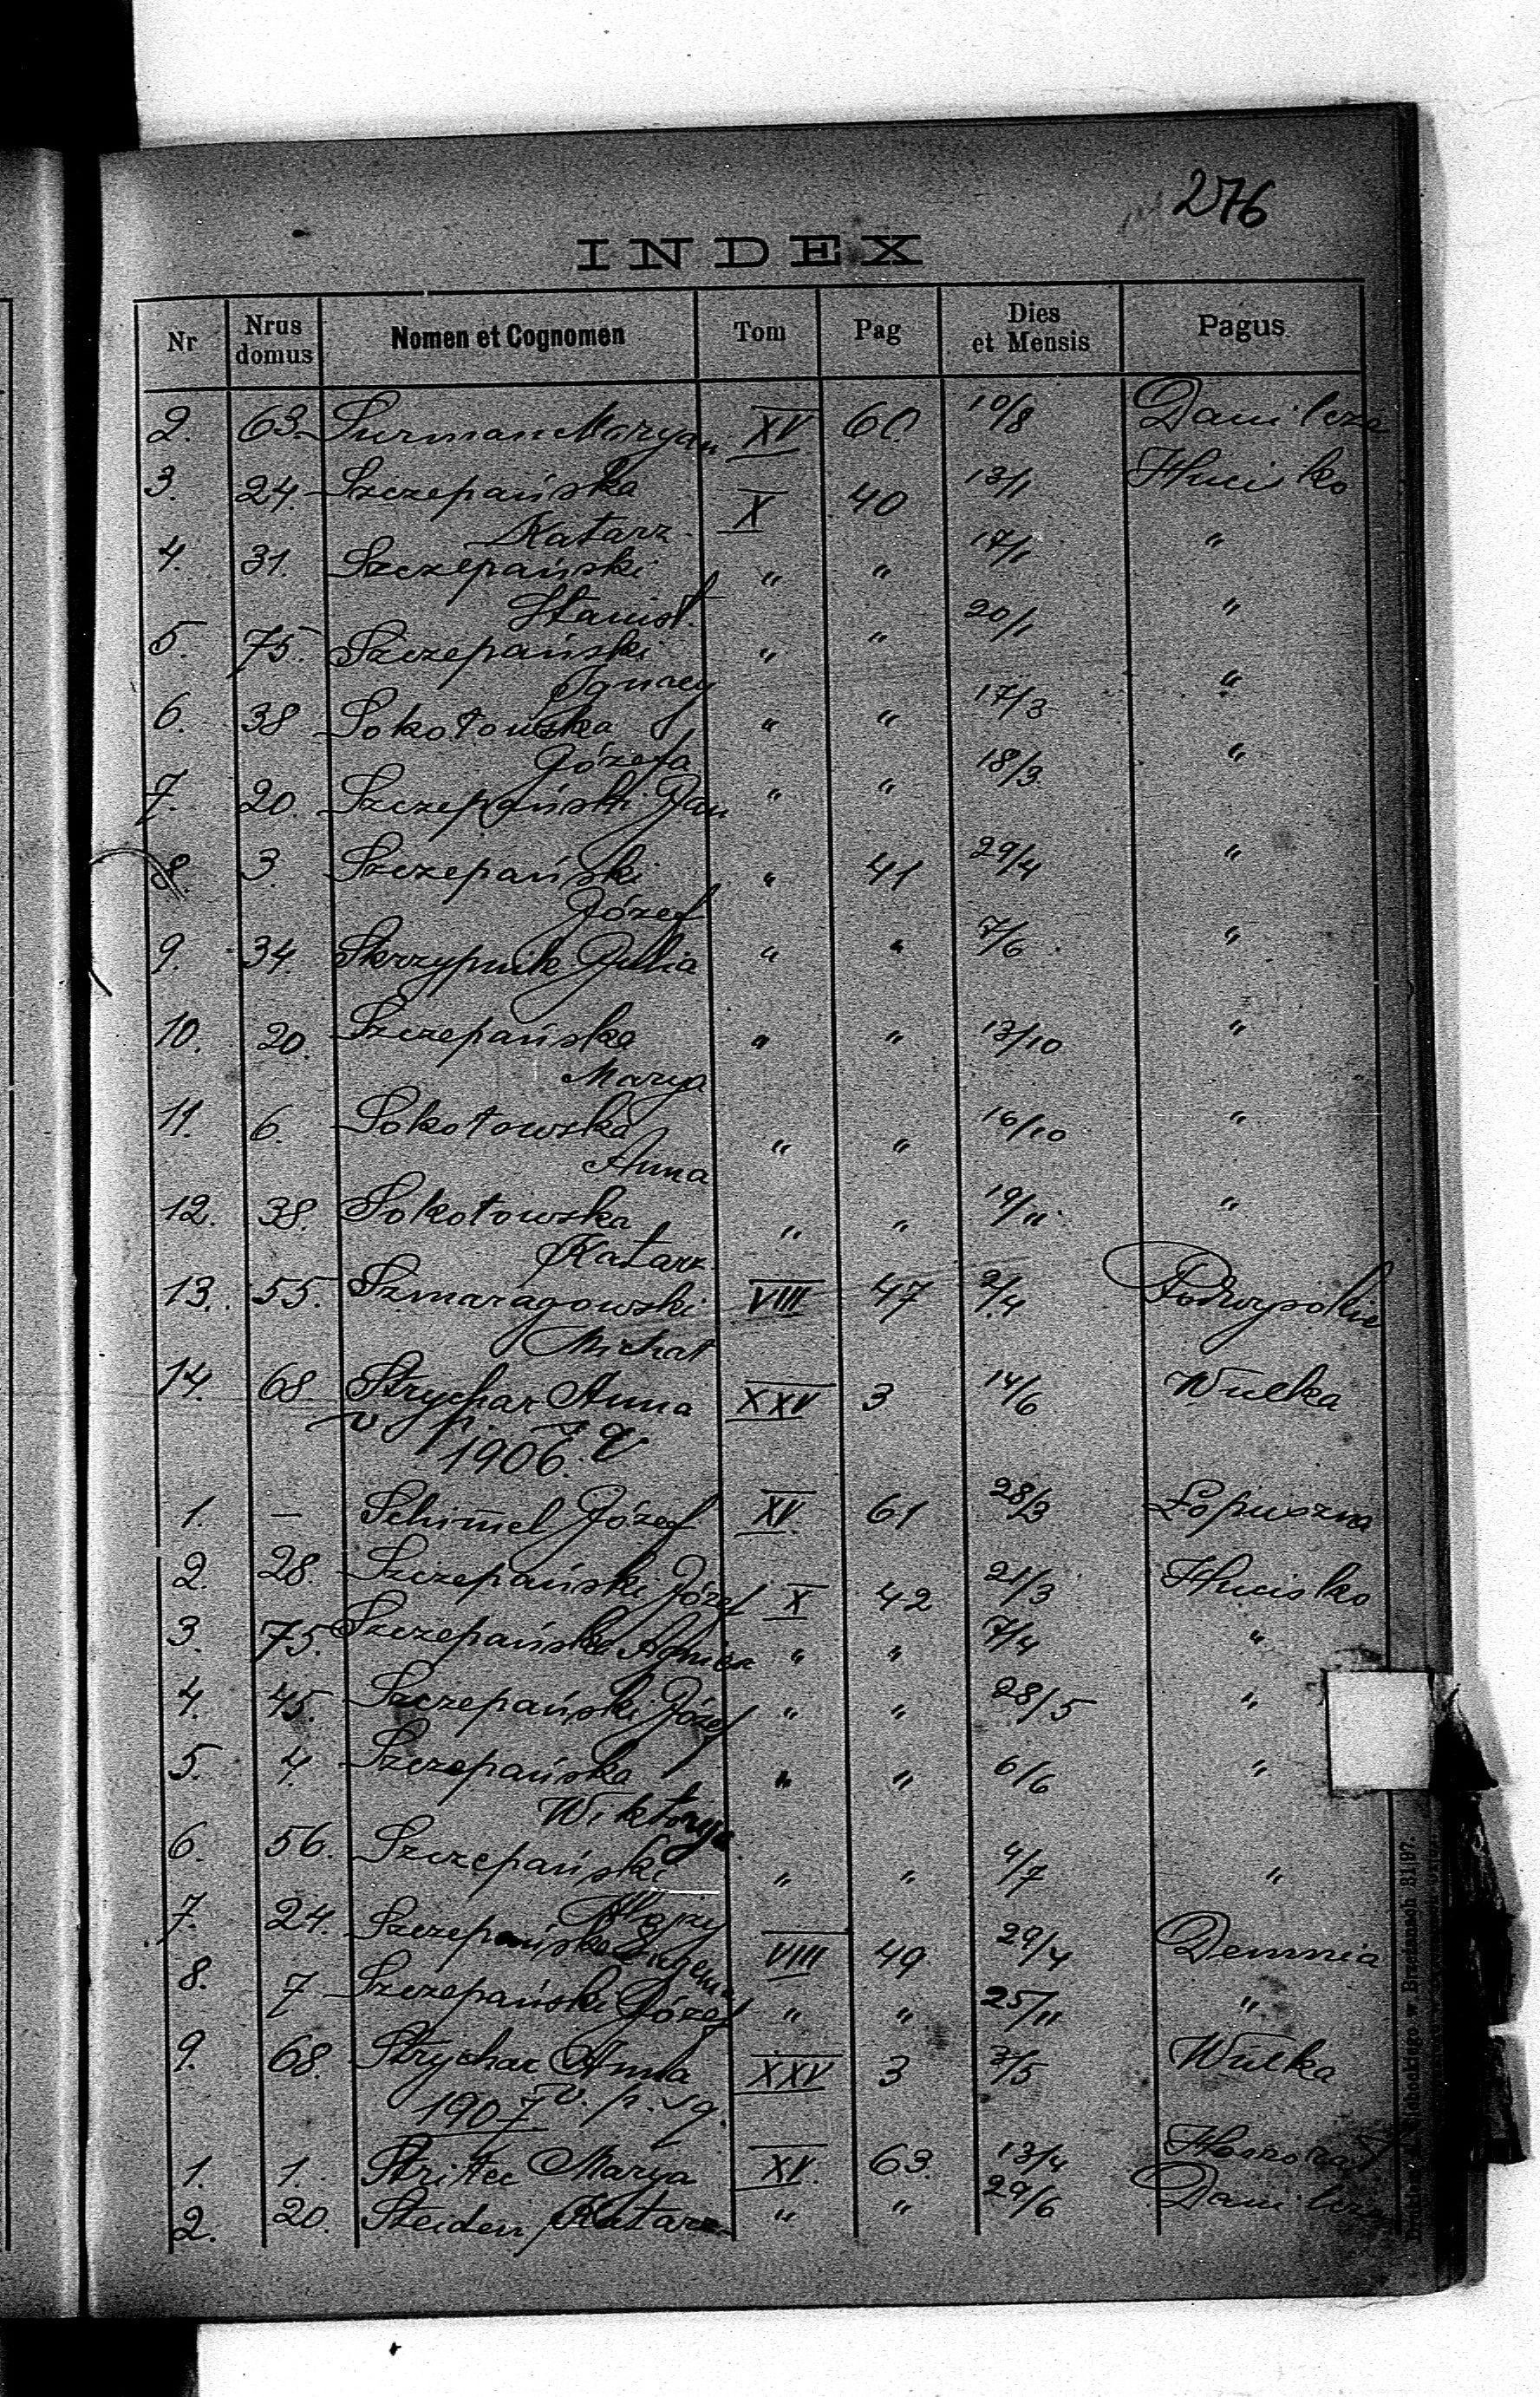 276
INDEX
Nr Nrus domus Nomen et Cognomen Tom Pag Dies et Mensis Pagus
2. 63. Surman Maryan XV 60. 10/8 Danilcze
3. 24. Szczepańska X 40 13/1 Hucisko
Katarz.
4. 31. Szczepański " " 17/1 "
Stanisł.
5. 75. Szczepański " " 20/1 "
Ignacy
6. 38 Sokołowska " " 17/3 "
Józefa
7. 20. Szczepański Jan " " 18/3 "
8. 3. Szczepański " 41 29/4 "
Józef
9. 34. Skrzypnik Julia " " 7/6 "
10. 20. Szczepańska " " 13/10 "
Marya
11. 6. Sokołowska " " 16/10 "
Anna
12. 38. Sokołowska " " 19/11 "
Katarz.
13. 55. Szmaragowski VIII 47 2/4 Podwysokie
Michał
14. 68. Strychar Anna XXV 3 14/6 Wulka
v. p.
1906.
1. — Schimel Józef XV. 61 28/3 Łopuszna
2. 28. Szczepański Józef X 42 21/3 Hucisko
3. 75. Szczepańska Agniesz " " 7/4 "
4. 45. Szczepański Józef " " 28/5 "
5. 4. Szczepańska " " 6/6 "
Wiktorya
6. 56. Szczepański " " 4/7 "
7. 24. Szczepańska Eugenia VIII 49 29/4 Demnia
8. 7 Szczepański Józef " " 25/11 "
9. 68. Strychar Anna XXV 3 3/5 Wulka
1907 v. p.
1. 1. Stritec Marya XV. 63. 13/4
2. 20. Steiden Katarz. " " 29/6 Danilcze